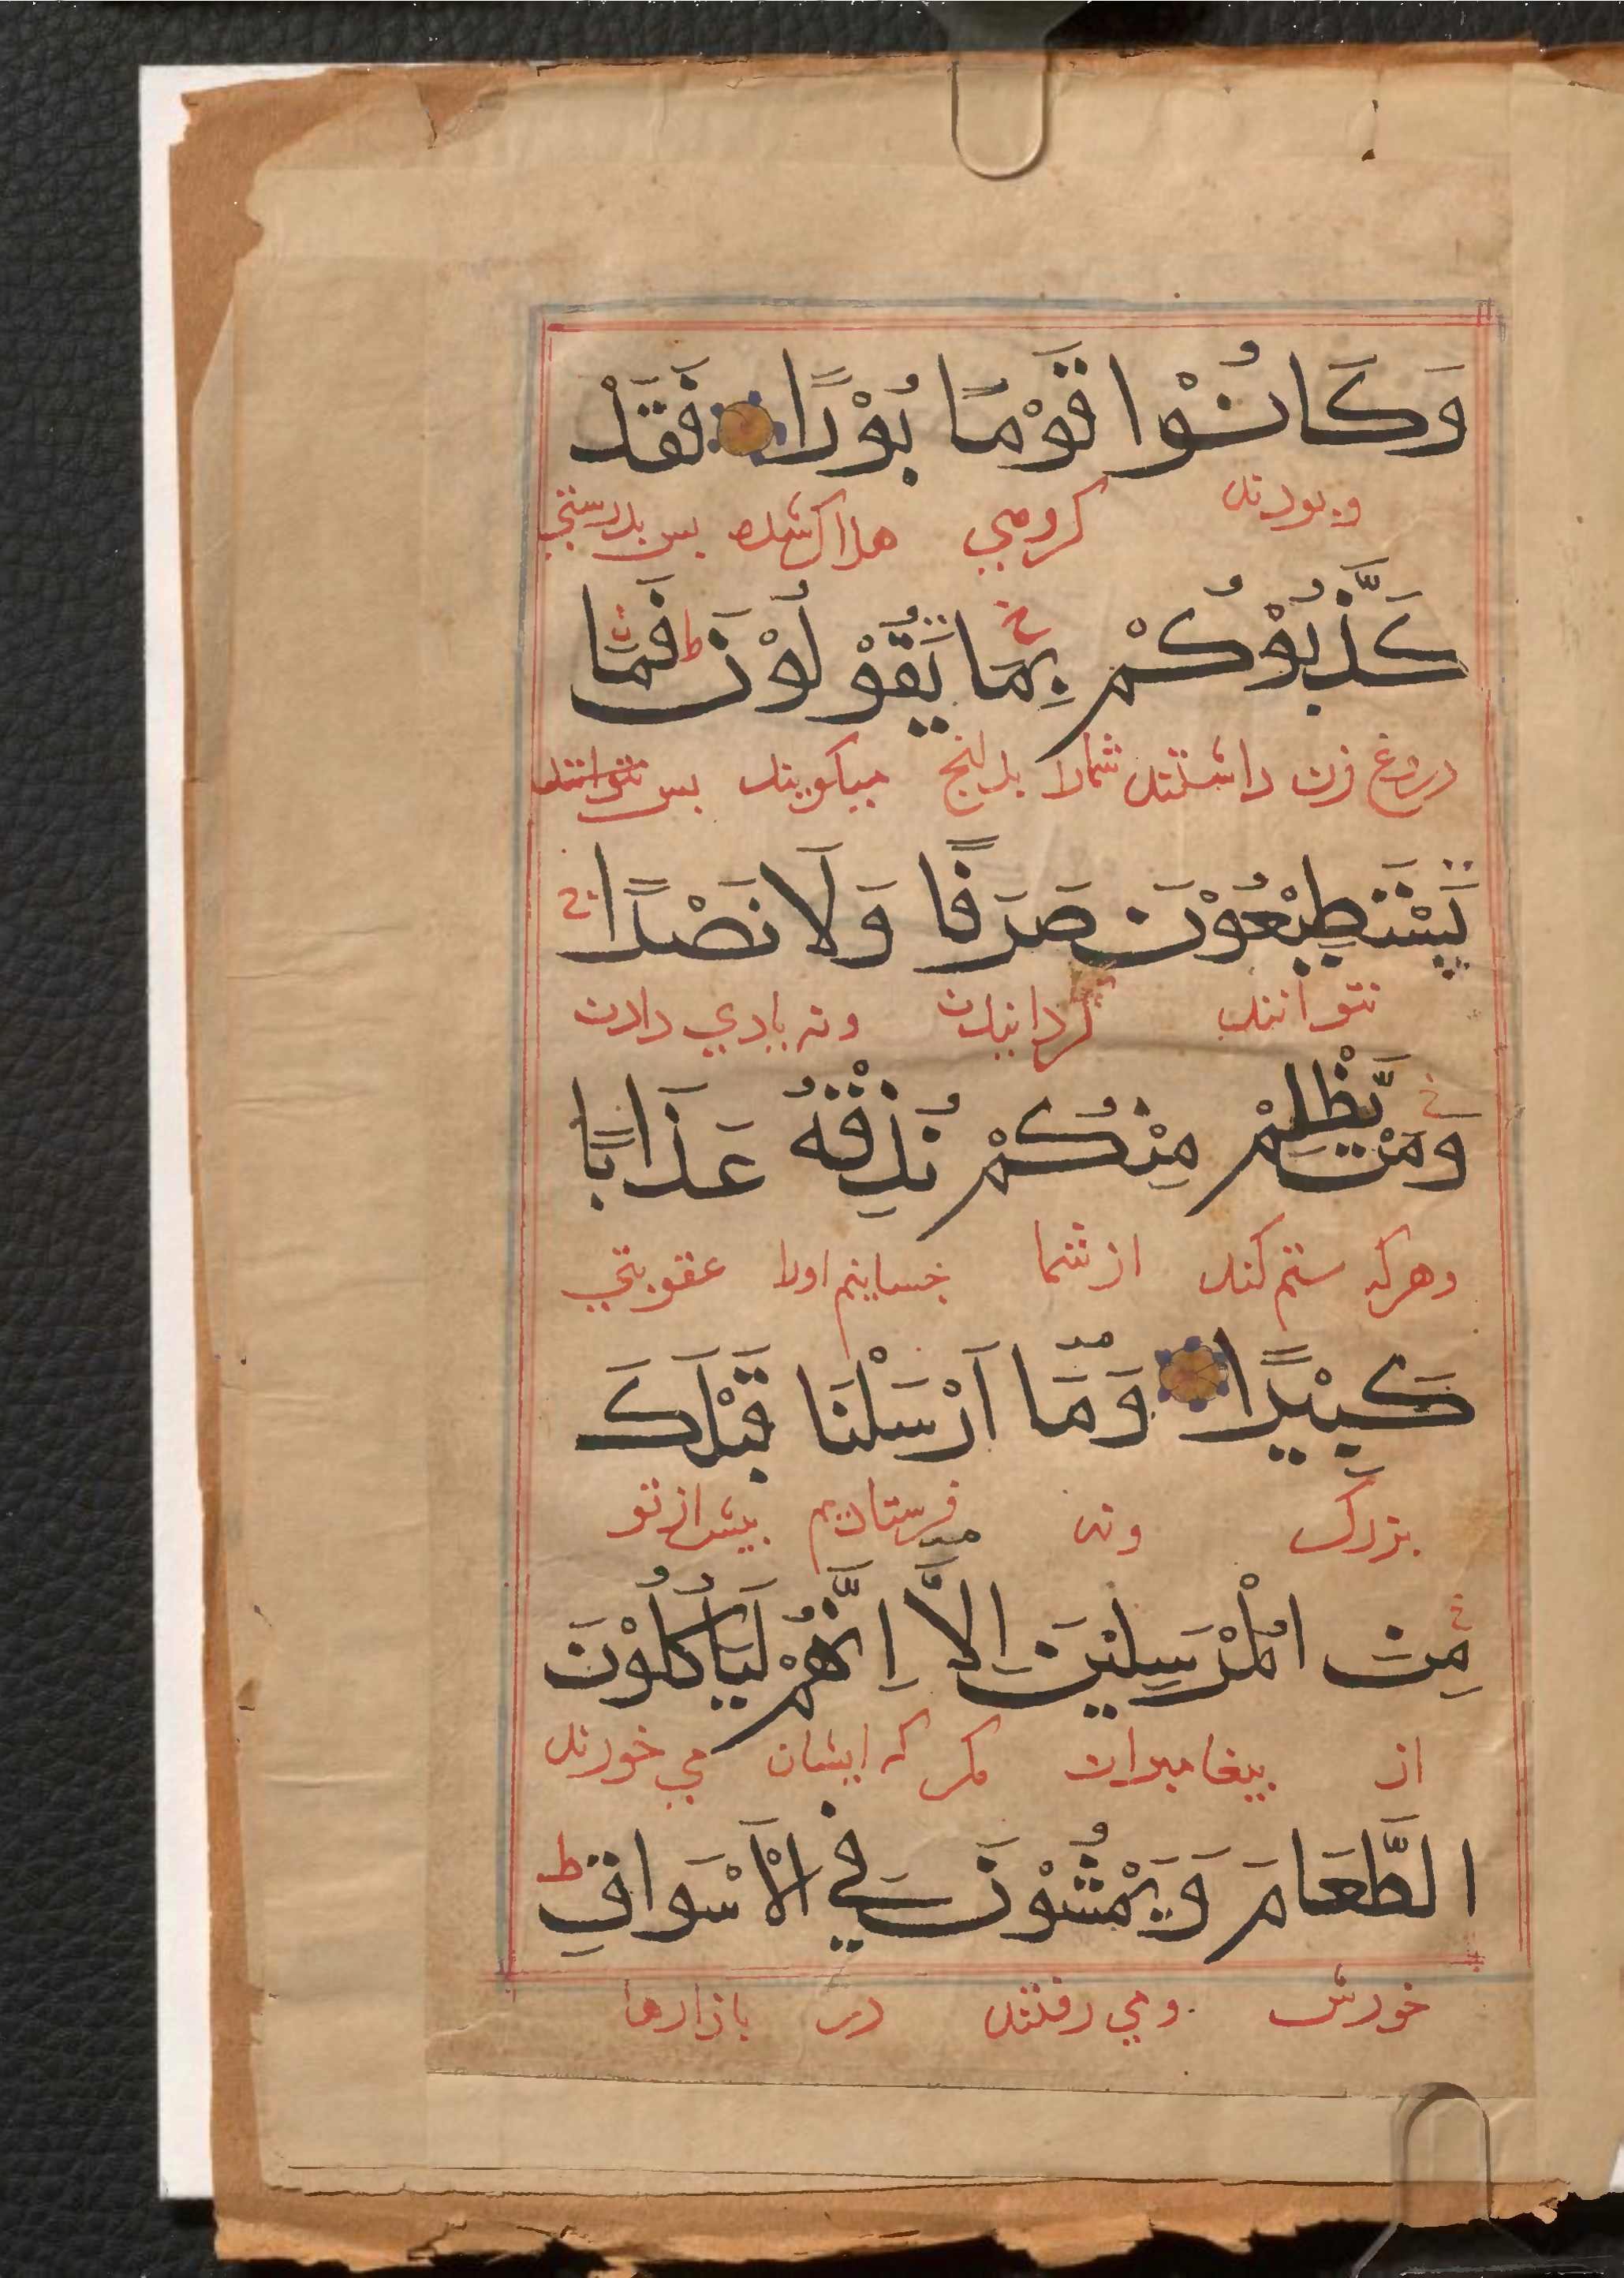 وَكَانُوْا قَوْمًا بُوْرًا فَقَدْ
وبودند كروهي هلاك شده بس بدرستي
كَذَّبُوْكُمْ بِمَا يَقُوْلُوْنَ ط فَمَا
دروغ زن داشتند شمارا بدانج ميكويند بس نتوانند
يَسْتَطِيْعُوْنَ صَرَفًا وَلَا نَصْرًا ج
نتوانند كردانيدن ونه ياري دادن
وَمَنْ يَّظْلِمْ مِنْكُمْ نُذِقْهُ عَذَابًا
وهركه ستم كند از شما جسانيم اورا عقوبتي
كَبِيْرًا وَمَا اَرْسَلْنَا قَبْلَكَ
بزرك ونه فرستاديم بيش از تو
مِنَ الْمُرْسَلِيْنَ اِلَّا اِنَّهُمْ لَيَأْكُلُوْنَ
از بيغامبران مكر كه ايشان مي خورند
الطَّعَامَ وَيَمْشُوْنَ فِي الْاَسْوَاقِ ط
خورش ومي رفتند در بازارها